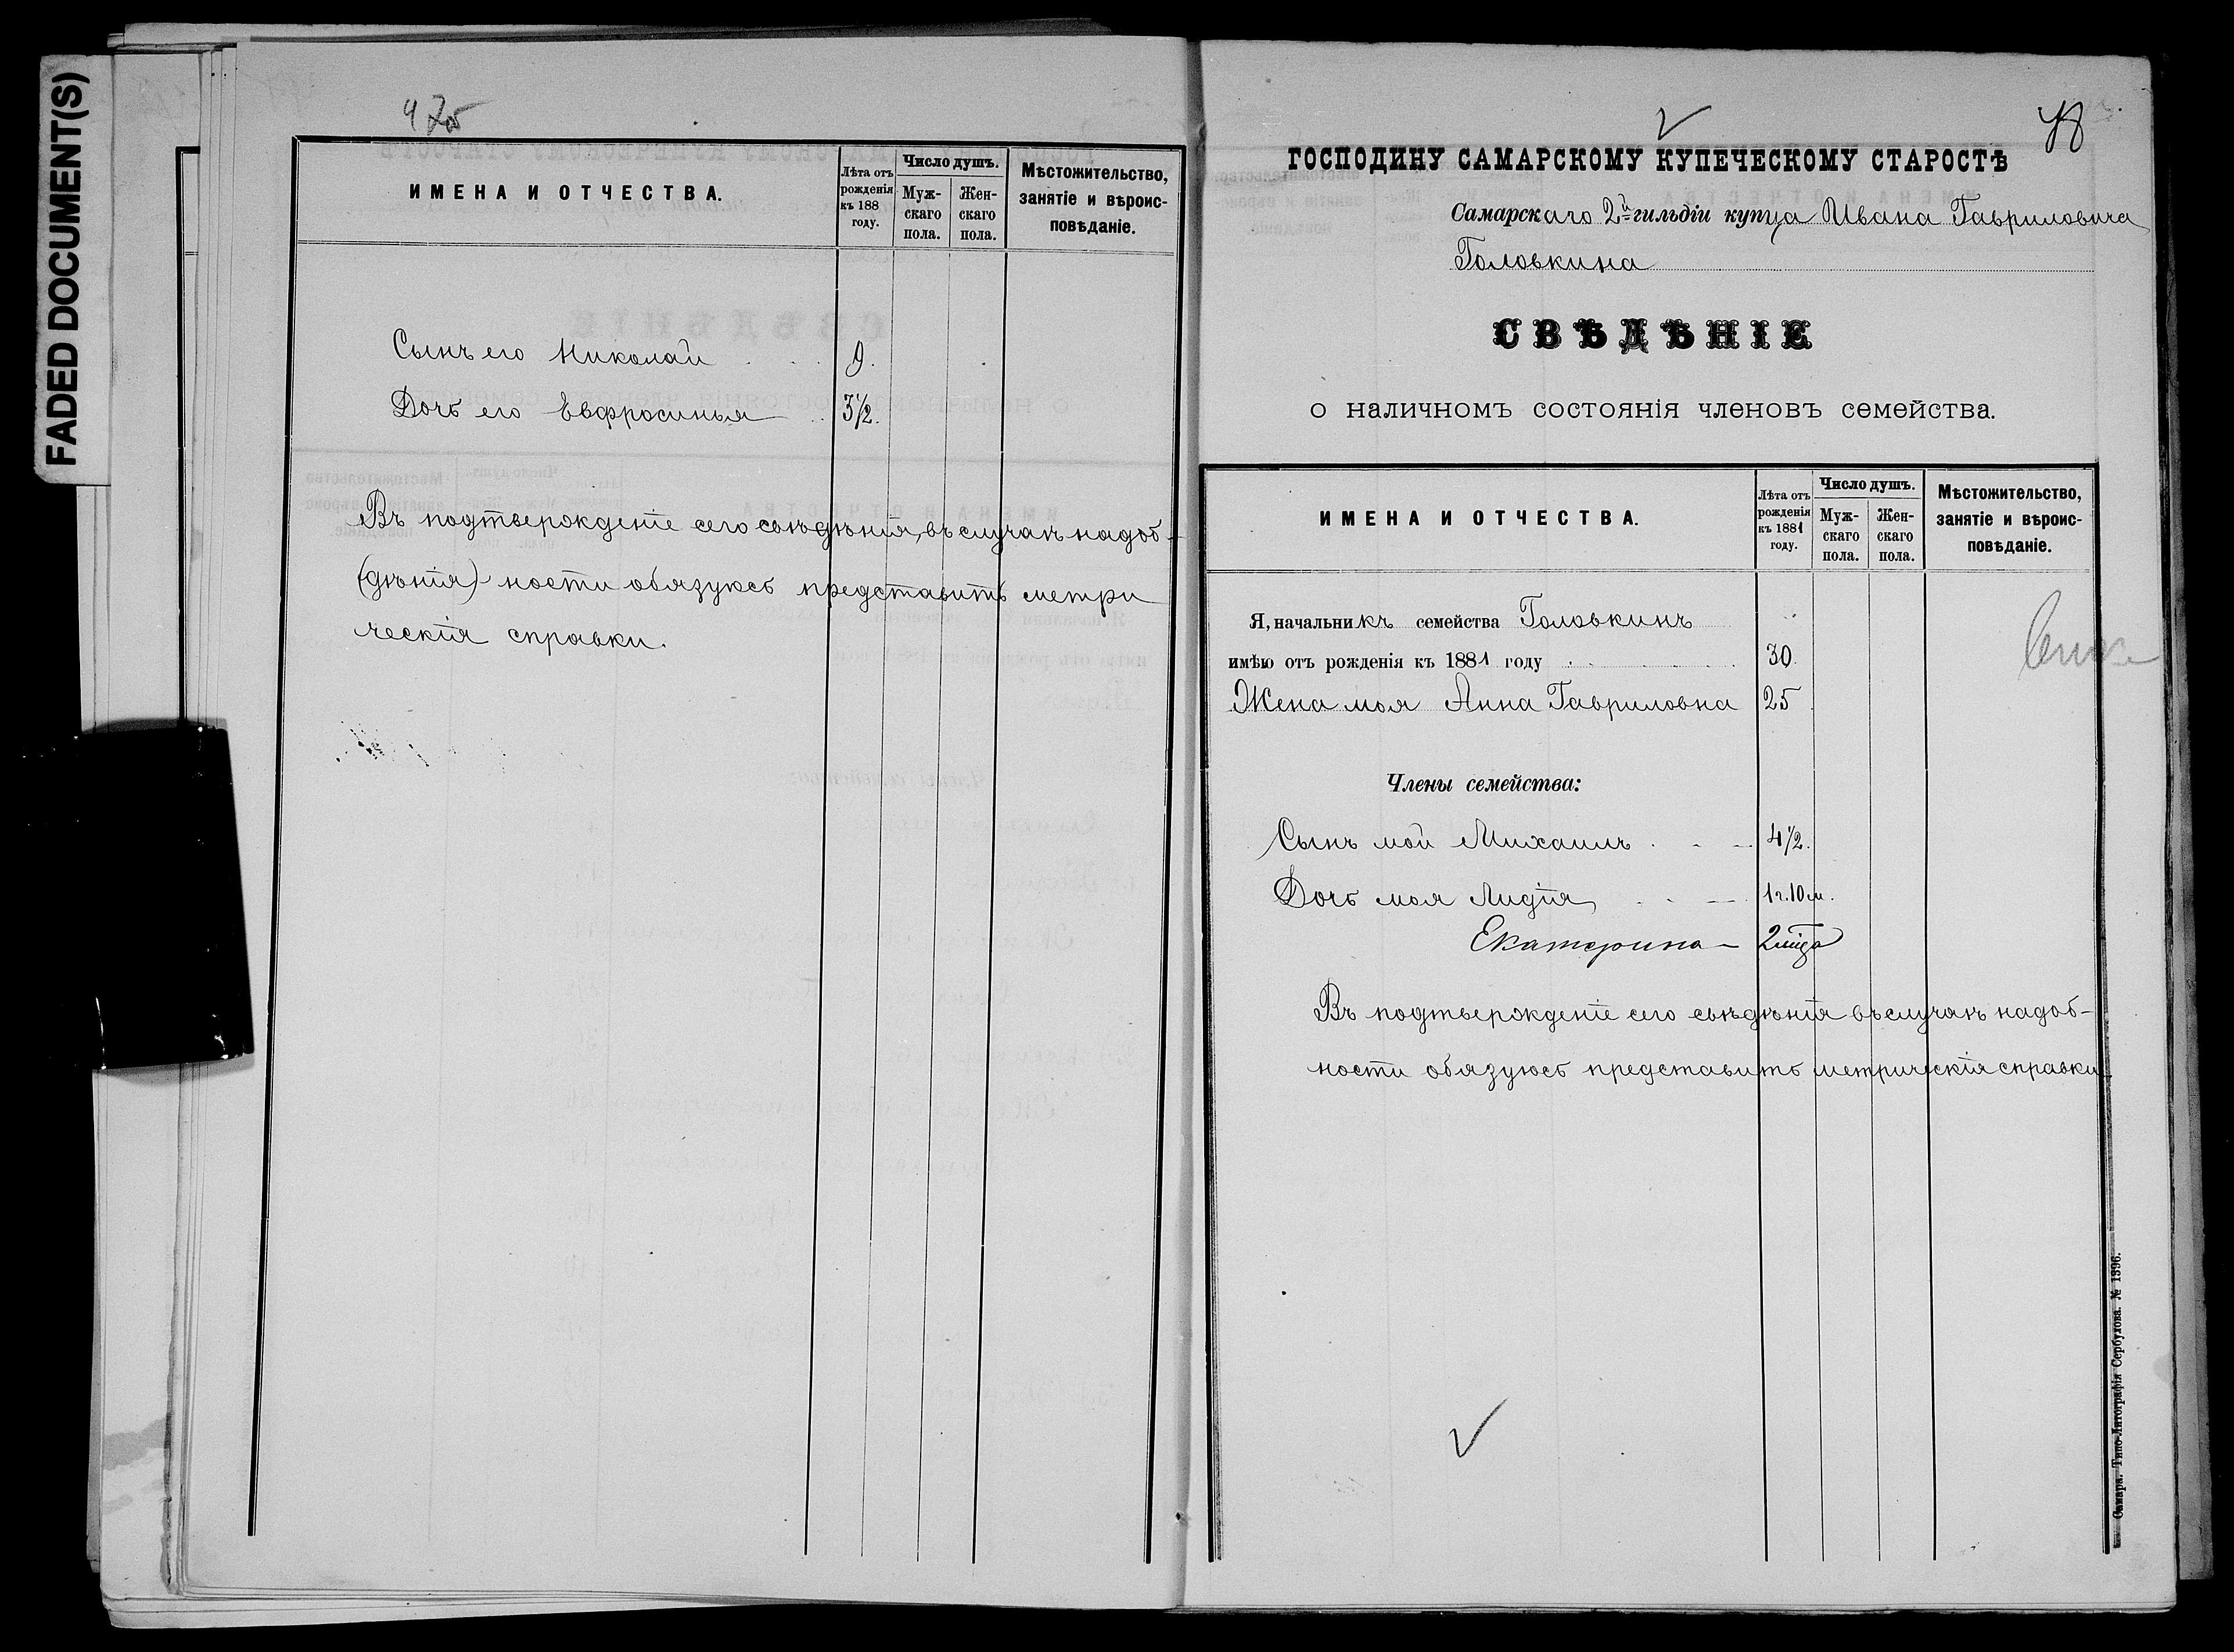 FADED DOCUMENT(S)
ИМЕНА И ОТЧЕСТВА.
Лѣта отъ рожденія къ 188 году.
Число душъ.
Мужскаго пола.
Женскаго пола.
Мѣстожительство, занятіе и вѣроисповѣданіе.
Сынъ его Николай . . . 9.
Дочь его Евфросинья . . 3½.
Въ подтвержденіе сего свѣдѣнія, въ случаѣ надоб-
(дѣнія) ности обязуюсь представить метри
ческія справки.
48
ГОСПОДИНУ САМАРСКОМУ КУПЕЧЕСКОМУ СТАРОСТѢ
Самарскаго 2й гильдіи купца Ивана Гавриловича
Головкина
СВѢДѢНІЕ
о наличномъ состоянія членовъ семейства.
ИМЕНА И ОТЧЕСТВА.
Лѣта отъ рожденія къ 1881 году.
Число душъ.
Муж-скаго пола.
Жен-скаго пола.
Мѣстожительство, занятіе и вѣроис-повѣданіе.
Я, начальникъ семейства Головкинъ
имѣю отъ рожденія къ 1881 году 30.
Жена моя Анна Гавриловна 25
Члены семейства:
Сынъ мой Михаилъ . - - 4½.
Дочь моя Лидія . - — 1г.10м.
Екатерина — 2 мѣца
Въ подтвержденіе сего свѣдѣнія въ случаѣ надоб-
ности обязуюсь представить метрическія справки
Самара. Типо-Литографія Сербулова. № 1396.